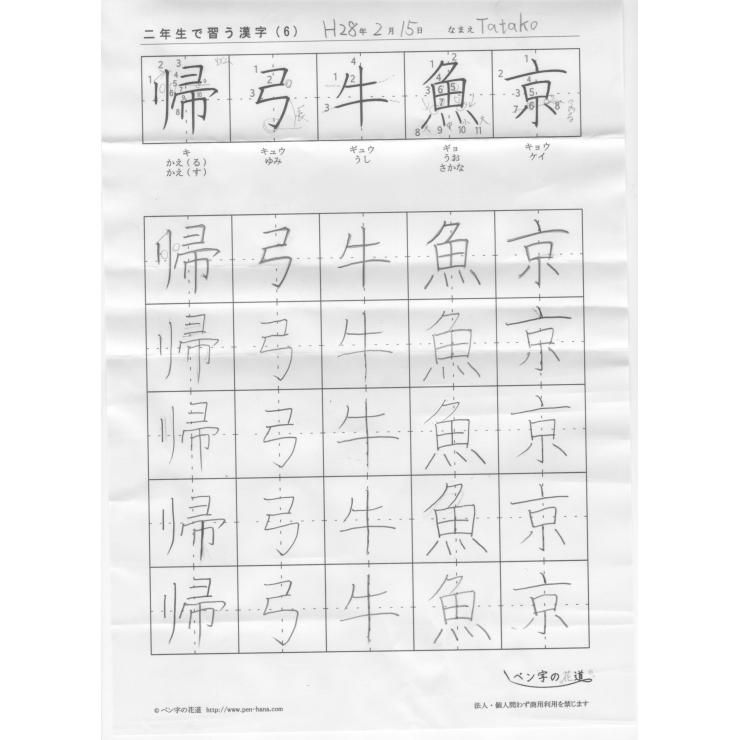 二年生で習う漢字（6） H28年 2月 15日 なまえ Tatako
帰 弓 牛 魚 京
キ キュウ ギュウ ギョ キョウ
かえ（る） ゆみ うし うお ケイ
かえ（す） さかな
帰 弓 牛 魚 京
帰 弓 牛 魚 京
帰 弓 牛 魚 京
帰 弓 牛 魚 京
帰 弓 牛 魚 京
ペン字の花道
© ペン字の花道 http://www.pen-hana.com 法人・個人問わず商用利用を禁じます